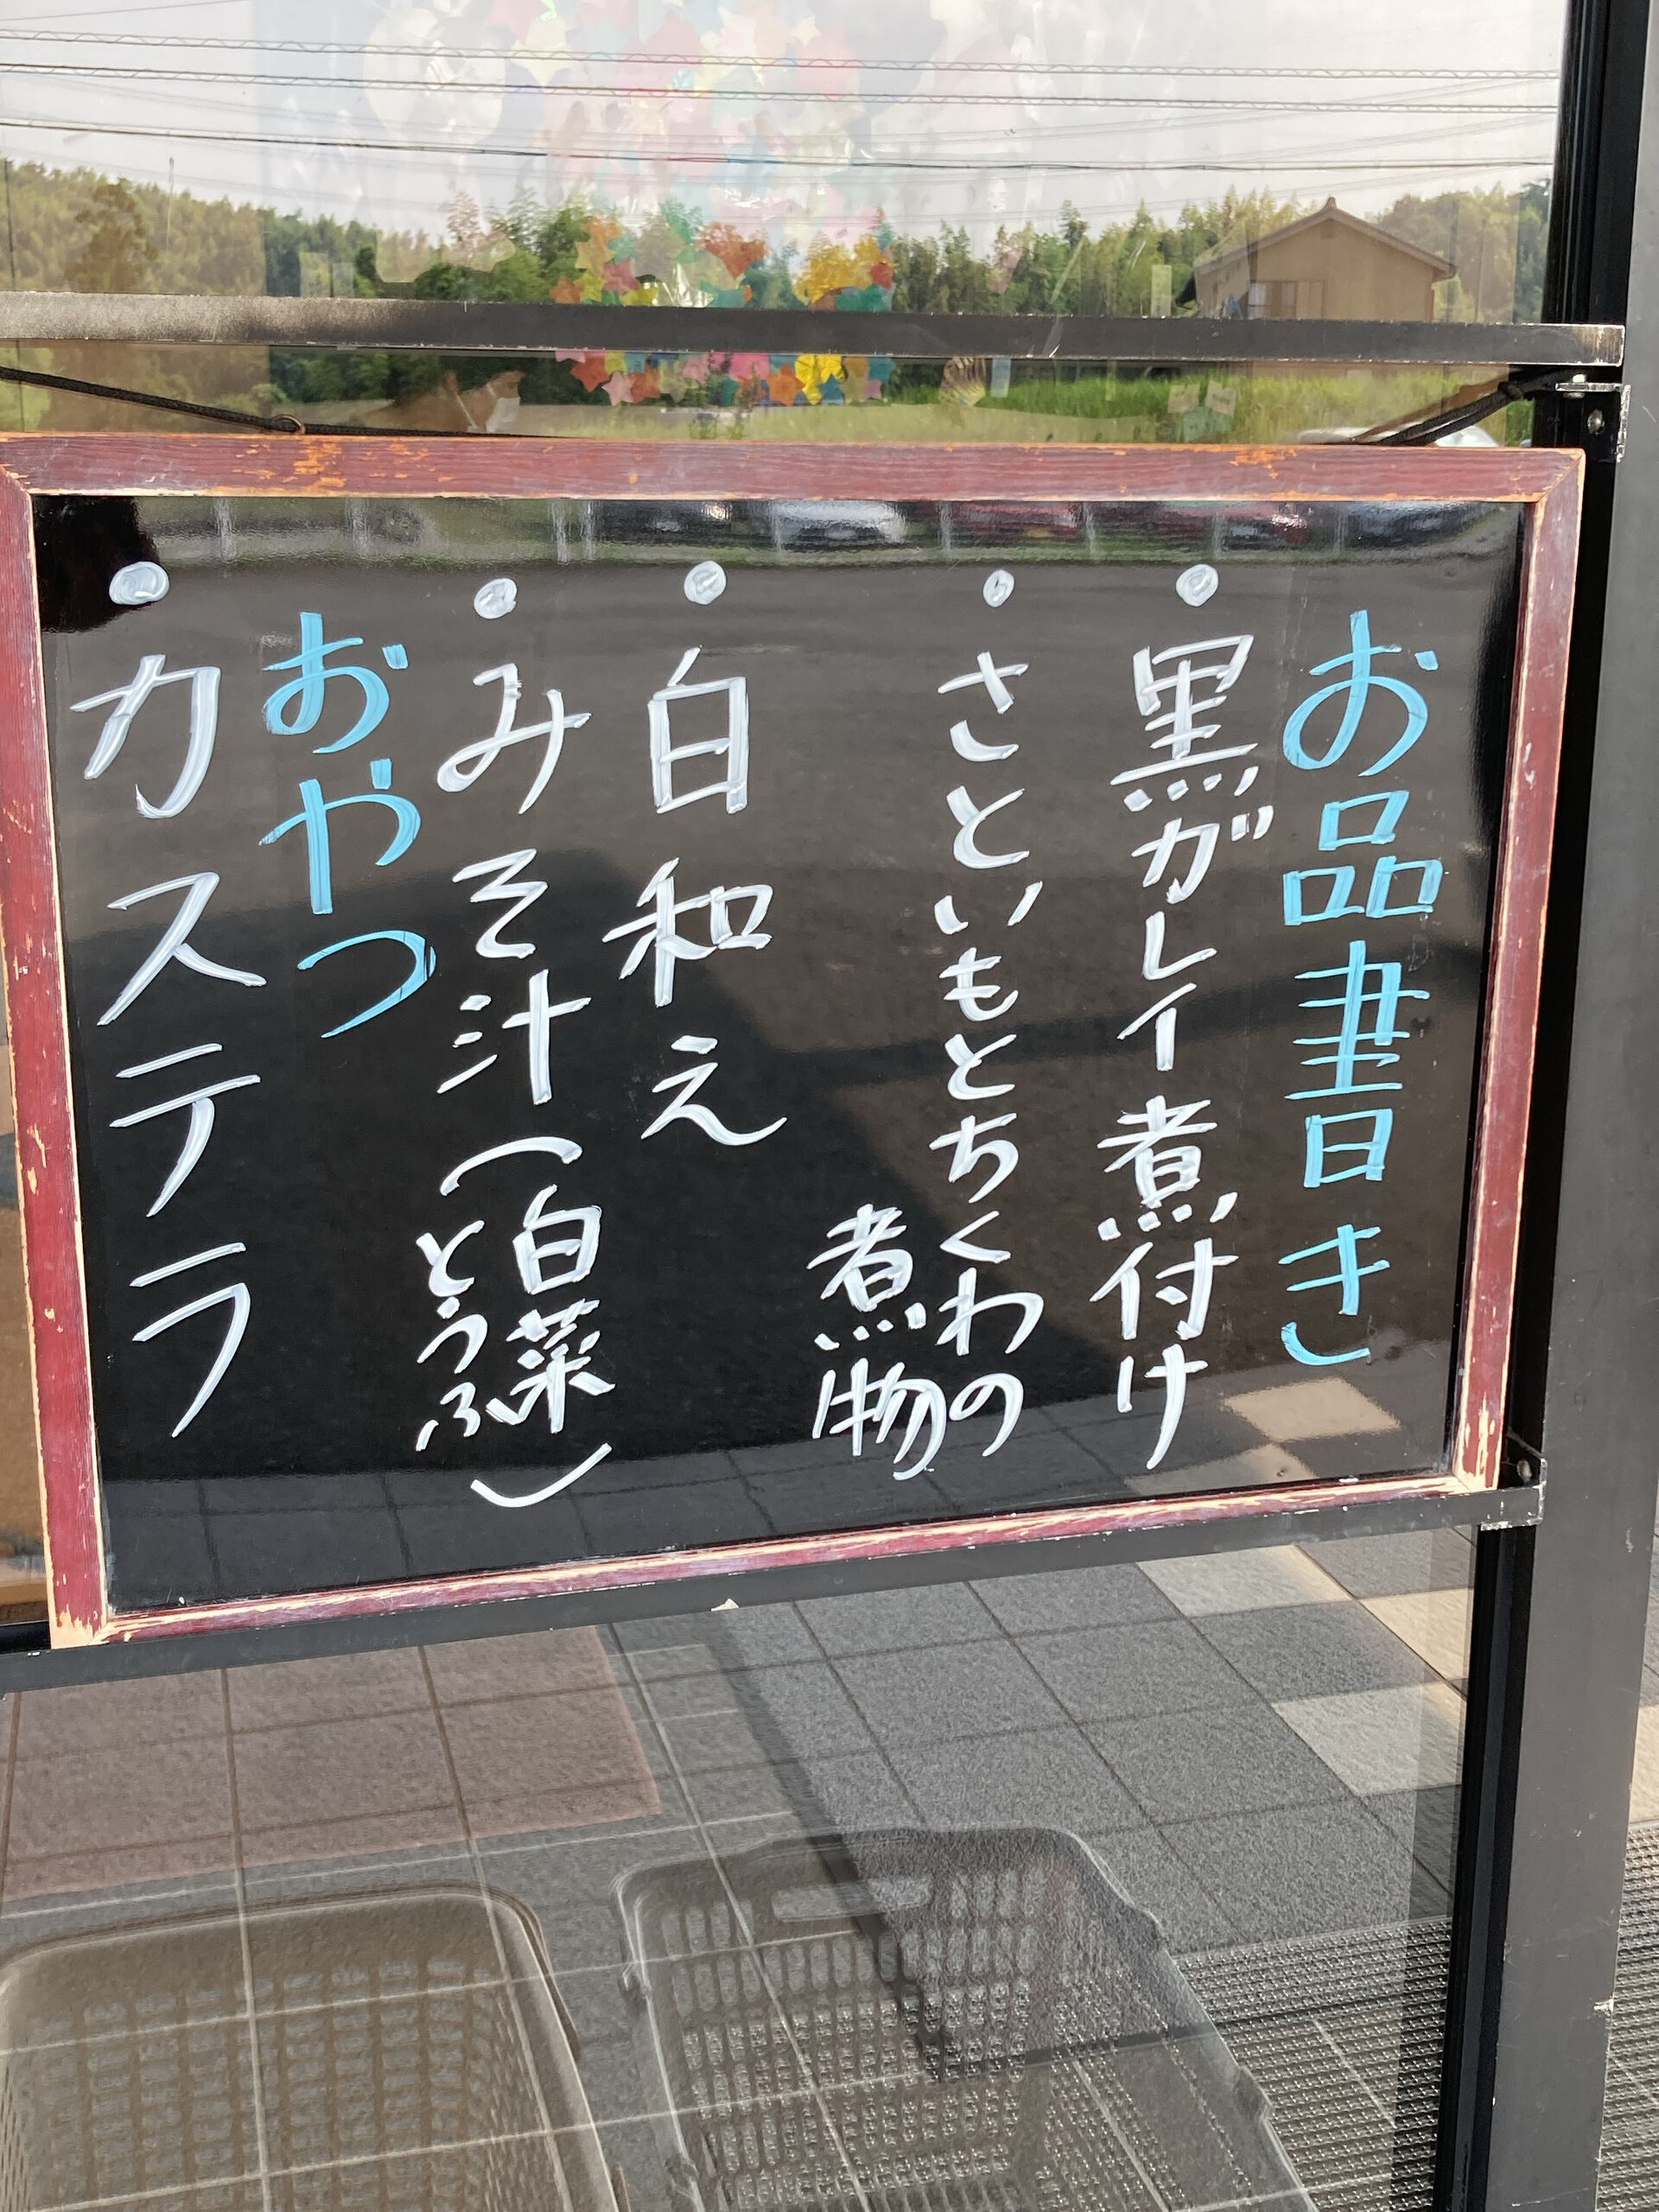 お品書き
・黒ガレイ煮付け
・さといもとちくわの
煮物
・白和え
・みそ汁(白菜
とうふ)
おやつ
・カステラ